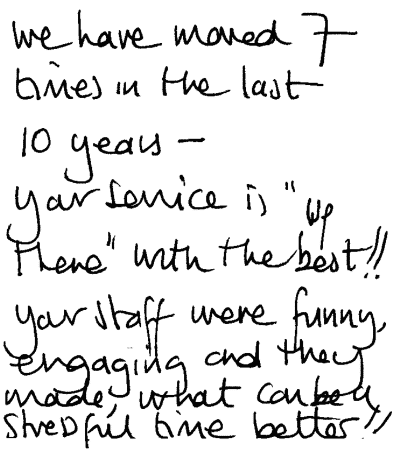 we have moved 7
times in the last
10 years –
your service is "up
there" with the best!!
your staff were funny,
engaging and they
made, what can be a
stressful time better!!